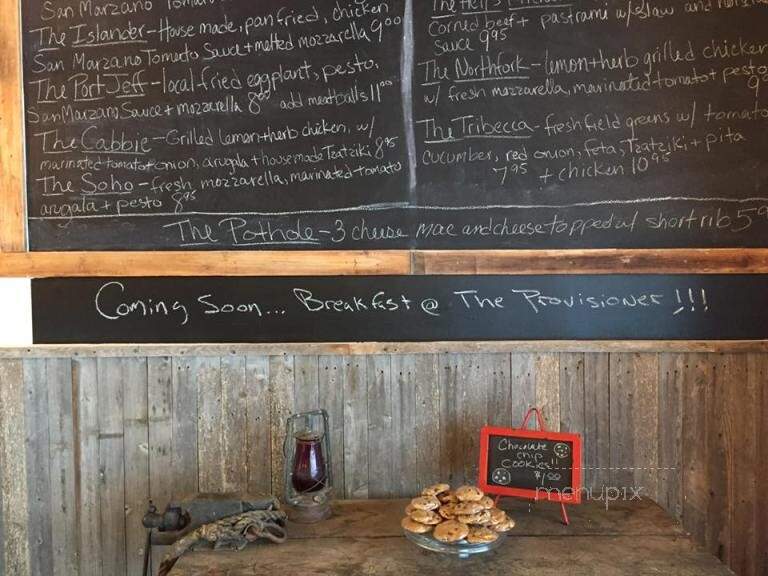 San Marzano Tomato
The Islander - House made, pan fried, chicken
San Marzano Tomato Sauce + melted mozzarella 9.00
The Port Jeff - local fried eggplant, pesto,
San Marzano Sauce + mozzarella 8.00 add meatballs 11.00
The Cabbie - Grilled lemon + herb chicken, w/
marinated tomato + onion, arugula + house made Tzatziki 8.95
The Soho - fresh, mozzarella, marinated tomato
arugala + pesto 8.95
Corned beef + pastrami w/ slaw and
sauce 9.95
The Northfork - lemon + herb grilled chicken
w/ fresh mozzarella, marinated tomato + pesto
The Tribecca - fresh field greens w/ tomato
cucumber, red onion, feta, Tzatziki + pita
7.95 + chicken 10.95
The Pothole - 3 cheese mac and cheese topped w/ short rib 5
Coming Soon... Breakfast @ The Provisioner!!!
Chocolate
chip
Cookies!!
$1.00
menupix